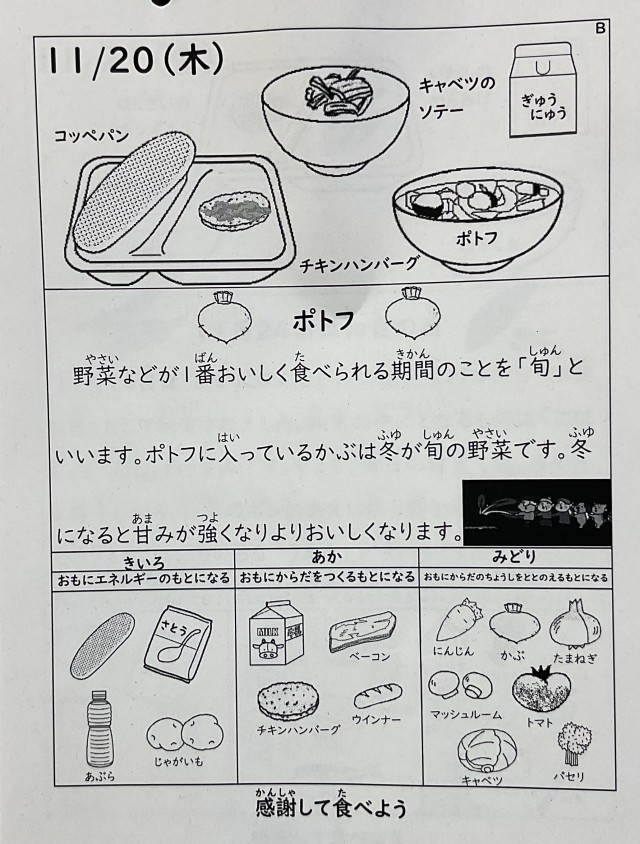 B
11/20(木)
キャベツの
ソテー
ぎゅう
にゅう
コッペパン
ポトフ
チキンハンバーグ
ポトフ
野菜などが1番おいしく食べられる期間のことを「旬」と
いいます。ポトフに入っているかぶは冬が旬の野菜です。冬
になると甘みが強くなりよりおいしくなります。
きいろ
おもにエネルギーのもとになる
あか
おもにからだをつくるもとになる
みどり
おもにからだのちょうしをととのえるもとになる
さとう
あぶら
じゃがいも
MILK
ベーコン
チキンハンバーグ
ウインナー
にんじん
かぶ
たまねぎ
マッシュルーム
トマト
キャベツ
パセリ
感謝して食べよう